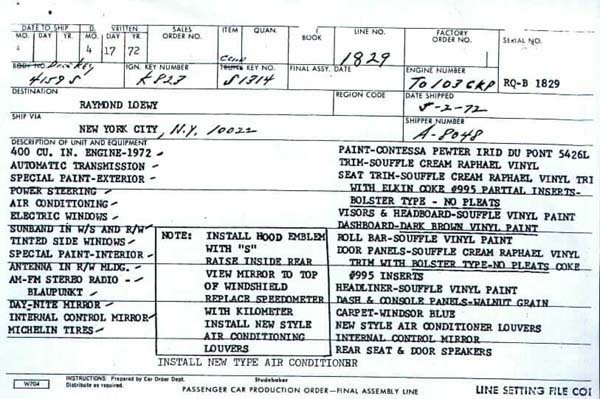 DATE TO SHIP D. WRITTEN SALES ITEM QUAN. LINE NO. FACTORY
MO. DAY YR. MO. DAY YR. ORDER NO. BOOK 1829 ORDER NO. SERIAL NO.
4 17 72
IGN. KEY NUMBER KEY NO. FINAL ASSY. DATE ENGINE NUMBER
4159 S K823 S1314 TO103CKP RQ-B 1829
DESTINATION REGION CODE DATE SHIPPED
RAYMOND LOEWY 5-2-72
SHIP VIA SHIPPER NUMBER
NEW YORK CITY, N.Y. 10022 A-8048
DESCRIPTION OF UNIT AND EQUIPMENT
400 CU. IN. ENGINE-1972
AUTOMATIC TRANSMISSION
SPECIAL PAINT-EXTERIOR
POWER STEERING
AIR CONDITIONING
ELECTRIC WINDOWS
SUNBAND IN W/S AND R/W
TINTED SIDE WINDOWS
SPECIAL PAINT-INTERIOR
ANTENNA IN R/W MLDG.
AM-FM STEREO RADIO --
BLAUPUNKT
DAY-NITE MIRROR
INTERNAL CONTROL MIRROR
MICHELIN TIRES
NOTE: INSTALL HOOD EMBLEM
WITH "S"
RAISE INSIDE REAR
VIEW MIRROR TO TOP
OF WINDSHIELD
REPLACE SPEEDOMETER
WITH KILOMETER
INSTALL NEW STYLE
AIR CONDITIONING
LOUVERS
INSTALL NEW TYPE AIR CONDITIONER
PAINT-CONTESSA PEWTER IRID DU PONT 5426L
TRIM-SOUFFLE CREAM RAPHAEL VINYL
SEAT TRIM-SOUFFLE CREAM RAPHAEL VINYL TRI
WITH ELKIN COKE #995 PARTIAL INSERTS-
BOLSTER TYPE - NO PLEATS
VISORS & HEADBOARD-SOUFFLE VINYL PAINT
DASHBOARD-DARK BROWN VINYL PAINT
ROLL BAR-SOUFFLE VINYL PAINT
DOOR PANELS-SOUFFLE CREAM RAPHAEL VINYL
TRIM WITH BOLSTER TYPE-NO PLEATS COKE
#995 INSERTS
HEADLINER-SOUFFLE VINYL PAINT
DASH & CONSOLE PANELS-WALNUT GRAIN
CARPET-WINDSOR BLUE
NEW STYLE AIR CONDITIONER LOUVERS
INTERNAL CONTROL MIRROR
REAR SEAT & DOOR SPEAKERS
W704 INSTRUCTIONS: Prepared by Car Order Dept. Studebaker
Distribute as required. PASSENGER CAR PRODUCTION ORDER—FINAL ASSEMBLY LINE LINE SETTING FILE COP